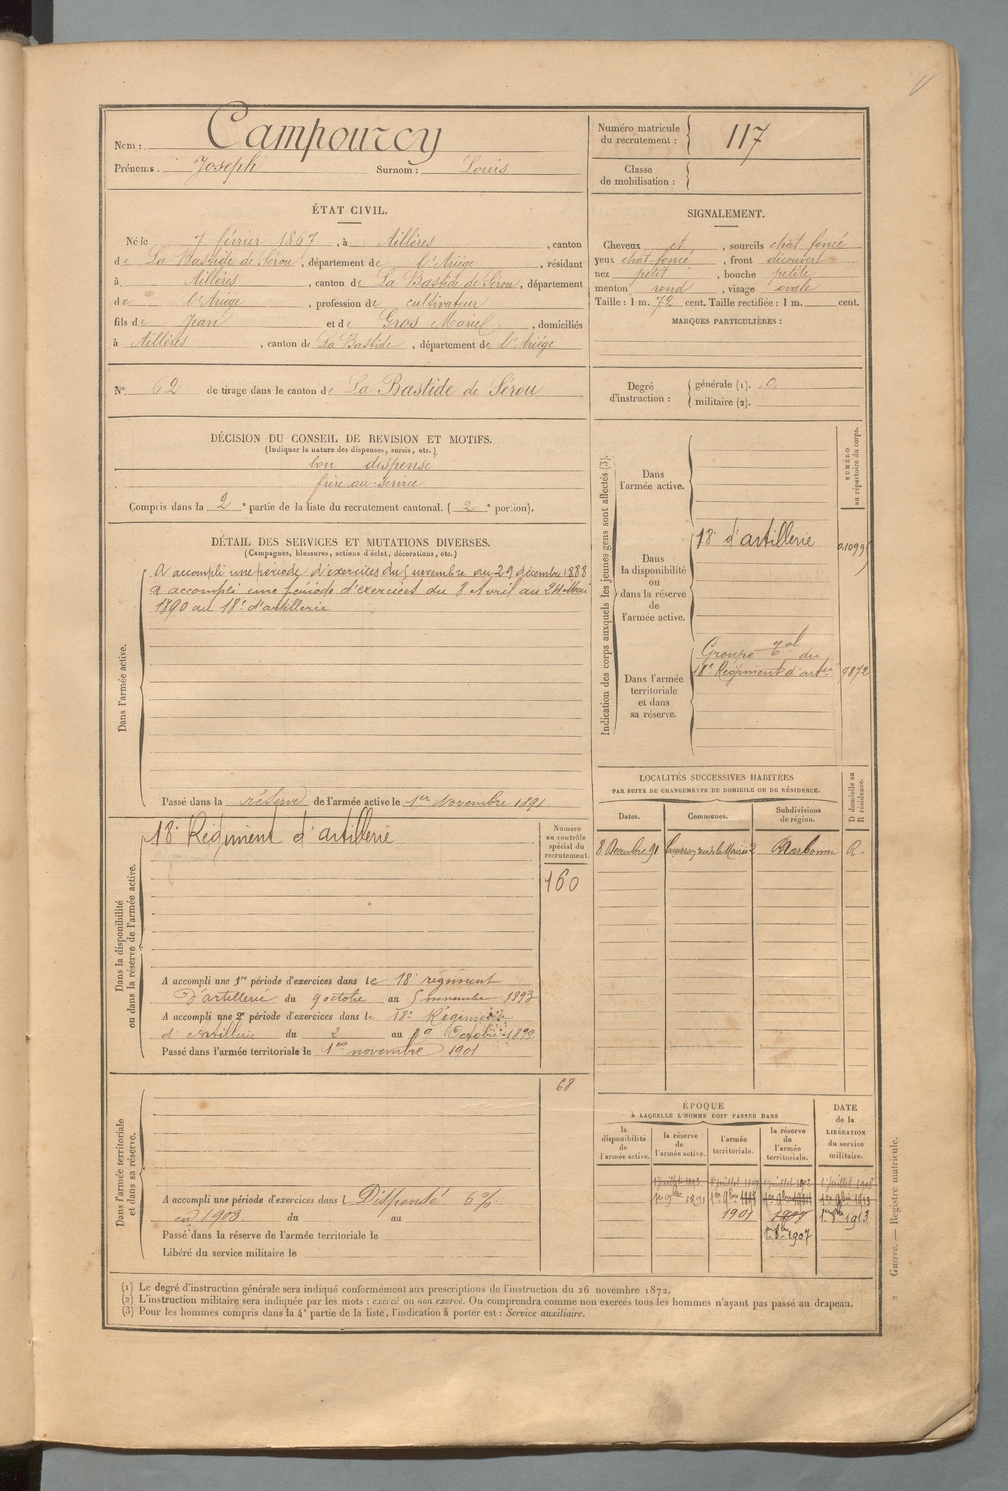 Nom : Campourcy
Prénoms . Joseph Surnom : Louis
Numéro matricule du recrutement : 117
Classe de mobilisation :
ÉTAT CIVIL.
Né le 7 février 1867 , à Aillères , canton
de La Bastide de Sérou , département de l'Ariège , résidant
à Aillères , canton de La Bastide de Sérou , département
de l'Ariège , profession de cultivateur
fils de Jean et de Gros Marie , domiciliés
à Aillères , canton de La Bastide , département de l'Ariège
SIGNALEMENT.
Cheveux et , sourcils chat foncé
yeux chat foncé , front découvert
nez petit , bouche petite
menton rond , visage ovale
Taille : 1 m. 72 cent. Taille rectifiée : 1 m. cent.
MARQUES PARTICULIÈRES :
N° 62 de tirage dans le canton de La Bastide de Sérou
Degré d'instruction : générale (1). 0
militaire (2).
DÉCISION DU CONSEIL DE REVISION ET MOTIFS.
(Indiquer la nature des dispenses, sursis, etc.)
bon dispense
frère au service
Compris dans la 2e partie de la liste du recrutement cantonal. ( 2e portion).
DÉTAIL DES SERVICES ET MUTATIONS DIVERSES.
(Campagnes, blessures, actions d'éclat, décorations, etc.)
Dans l'armée active.
A accompli une période d'exercices du 5 novembre au 29 décembre 1888
a accompli une période d'exercices du 8 Avril au
1890 au 18e d'artillerie
Passé dans la réserve de l'armée active le 1er Novembre 1891
Indication des corps auxquels les jeunes gens sont affectés (3).
NUMÉRO au répertoire du corps.
Dans l'armée active.
Dans la disponibilité ou dans la réserve de l'armée active.
18e d'artillerie
Dans l'armée territoriale et dans sa réserve.
Groupe tal du
18e Régiment d'artie 9872
Dans la disponibilité ou dans la réserve de l'armée active.
18e Régiment d'artillerie
Numéro au contrôle spécial du recrutement.
160
A accompli une 1re période d'exercices dans le 18e régiment
d'artillerie du 9 octobre au 5 novembre 1893
A accompli une 2e période d'exercices dans le 18e Régiment
d'Artillerie du 2 au Octobre 1899
Passé dans l'armée territoriale le 1er novembre 1901
LOCALITÉS SUCCESSIVES HABITÉES
PAR SUITE DE CHANGEMENTS DE DOMICILE OU DE RÉSIDENCE.
D domicile ou R résidence.
Dates. Communes. Subdivisions de région.
8 Décembre 91 Narbonne R.
Dans l'armée territoriale et dans sa réserve.
68
A accompli une période d'exercices dans l Dispensé 6%
en 1903 du au
Passé dans la réserve de l'armée territoriale le
Libéré du service militaire le
ÉPOQUE
À LAQUELLE L'HOMME DOIT PASSER DANS
la disponibilité de l'armée active.
la réserve de l'armée active.
l'armée territoriale.
la réserve de l'armée territoriale.
DATE de la LIBÉRATION du service militaire.
1er 9bre 1891
1901
1907
1913
(1) Le degré d'instruction générale sera indiqué conformément aux prescriptions de l'instruction du 26 novembre 1872.
(2) L'instruction militaire sera indiquée par les mots : exercé ou non exercé. On comprendra comme non exercés tous les hommes n'ayant pas passé au drapeau.
(3) Pour les hommes compris dans la 4e partie de la liste, l'indication à porter est : Service auxiliaire.
Guerre. — Registre matricule.